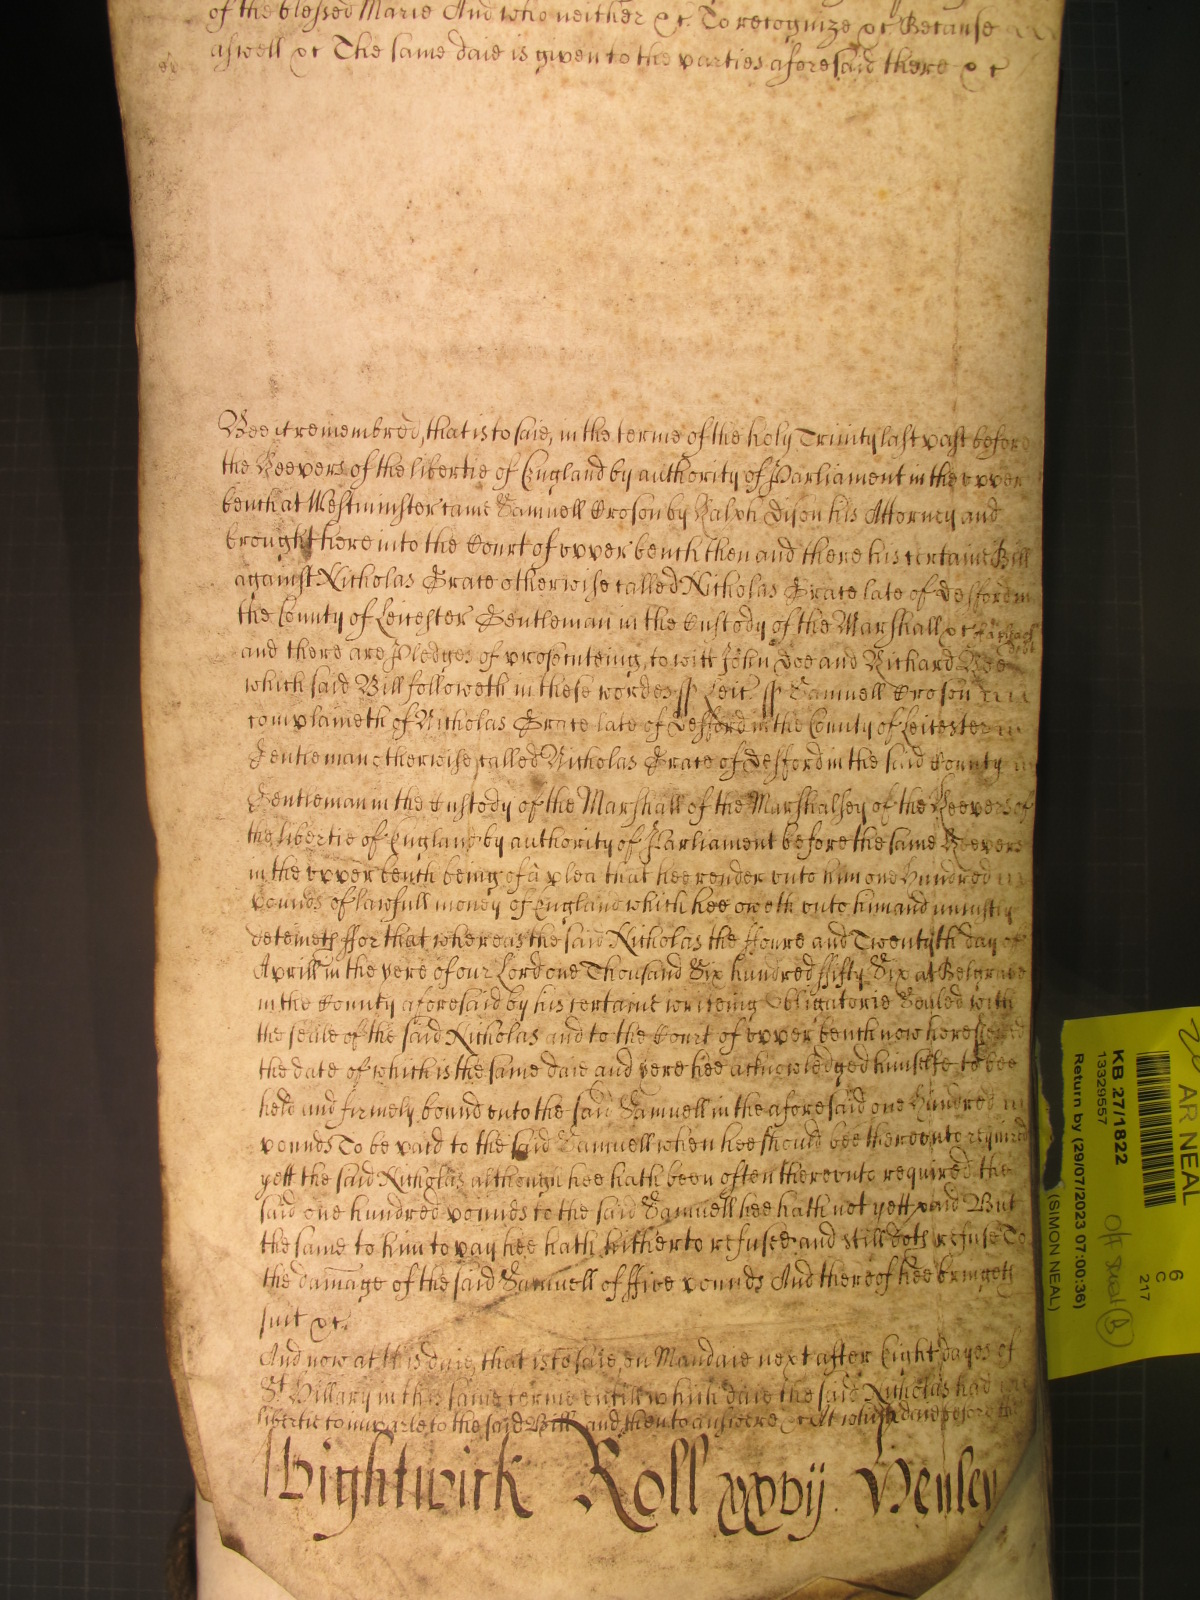 of the blessed Marie And who neither &c. To recognize &c Because
aswell &c The same daie is given to the parties aforesaid there &c
Bee it remembred, that is to saie, in the terme of the holy Trinity last past before
the Keepers of the libertie of England by authority of Parliament in the upper
bench at Westminster came Samuell Croson by Ralph Dison his Attorney and
brought here into the Court of upper bench then and there his certaine Bill
against Nicholas Grace otherwise called Nicholas Grace late of Desford in
the County of Leicester Gentleman in the Custody of the Marshall &c
and there are Pledges of prosecuteing, to witt John Doe and Richard Roe
which said Bill followeth in these wordes ss Leic ss Samuell Croson
complaineth of Nicholas Grace late of Desford in the County of Leicester
Gentleman otherwise called Nicholas Grace of Desford in the said County
Gentleman in the Custody of the Marshall of the Marshalsey of the Keepers of
the libertie of England by authority of Parliament before the same Keepers
in the upper bench being of a plea that hee render unto him one Hundred
pounds of lawfull money of England which hee oweth unto him and uniustly
deteineth ffor that whereas the said Nicholas the ffoure and Twentyth day of
Aprill in the yere of our Lord one Thousand Six hundred ffifty Six at Belgrave
in the County aforesaid by his certaine writeing Obligatorie Sealed with
the seale of the said Nicholas and to the Court of upper bench now here shewed
the date of which is the same daie and yere hee acknowledged himselfe to bee
held and firmely bound unto the said Samuell in the aforesaid one Hundred
pounds To be paid to the said Samuell when hee should bee thereunto required
yett the said Nicholas although hee hath been often thereunto required the
said one hundred pounds to the said Samuell hee hath not yett paid But
the same to him to pay hee hath hitherto refused and still doth refuse To
the damage of the said Samuell of ffive pounds And thereof hee bringeth
suit &c.
And now at this daie, that is to saie, on Mandaie next after Eight dayes of
St Hillary in this same terme untill which daie the said Nicholas had
libertie to imparle to the said Bill and then to answere &c At which daie before the
Wightwick Roll xxvij Henley
AR NEAL
KB 27/1822
13329557
Return by (29/07/2023 07:00:36)
(SIMON NEAL)
6
C
217